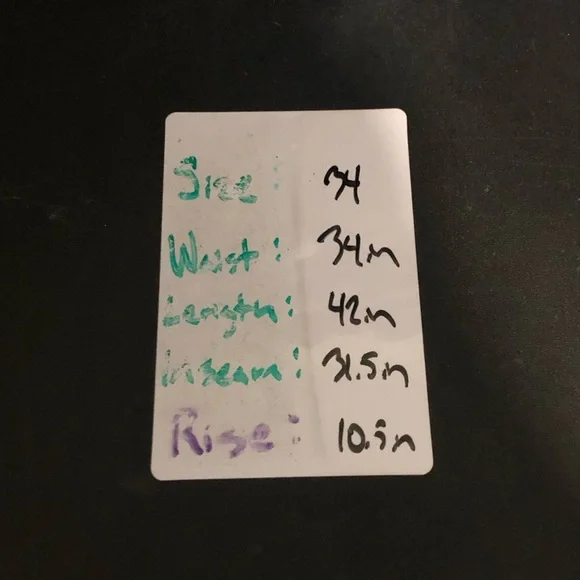 Size: 34
Waist: 34in
Length: 42in
Inseam: 31.5in
Rise: 10.5in